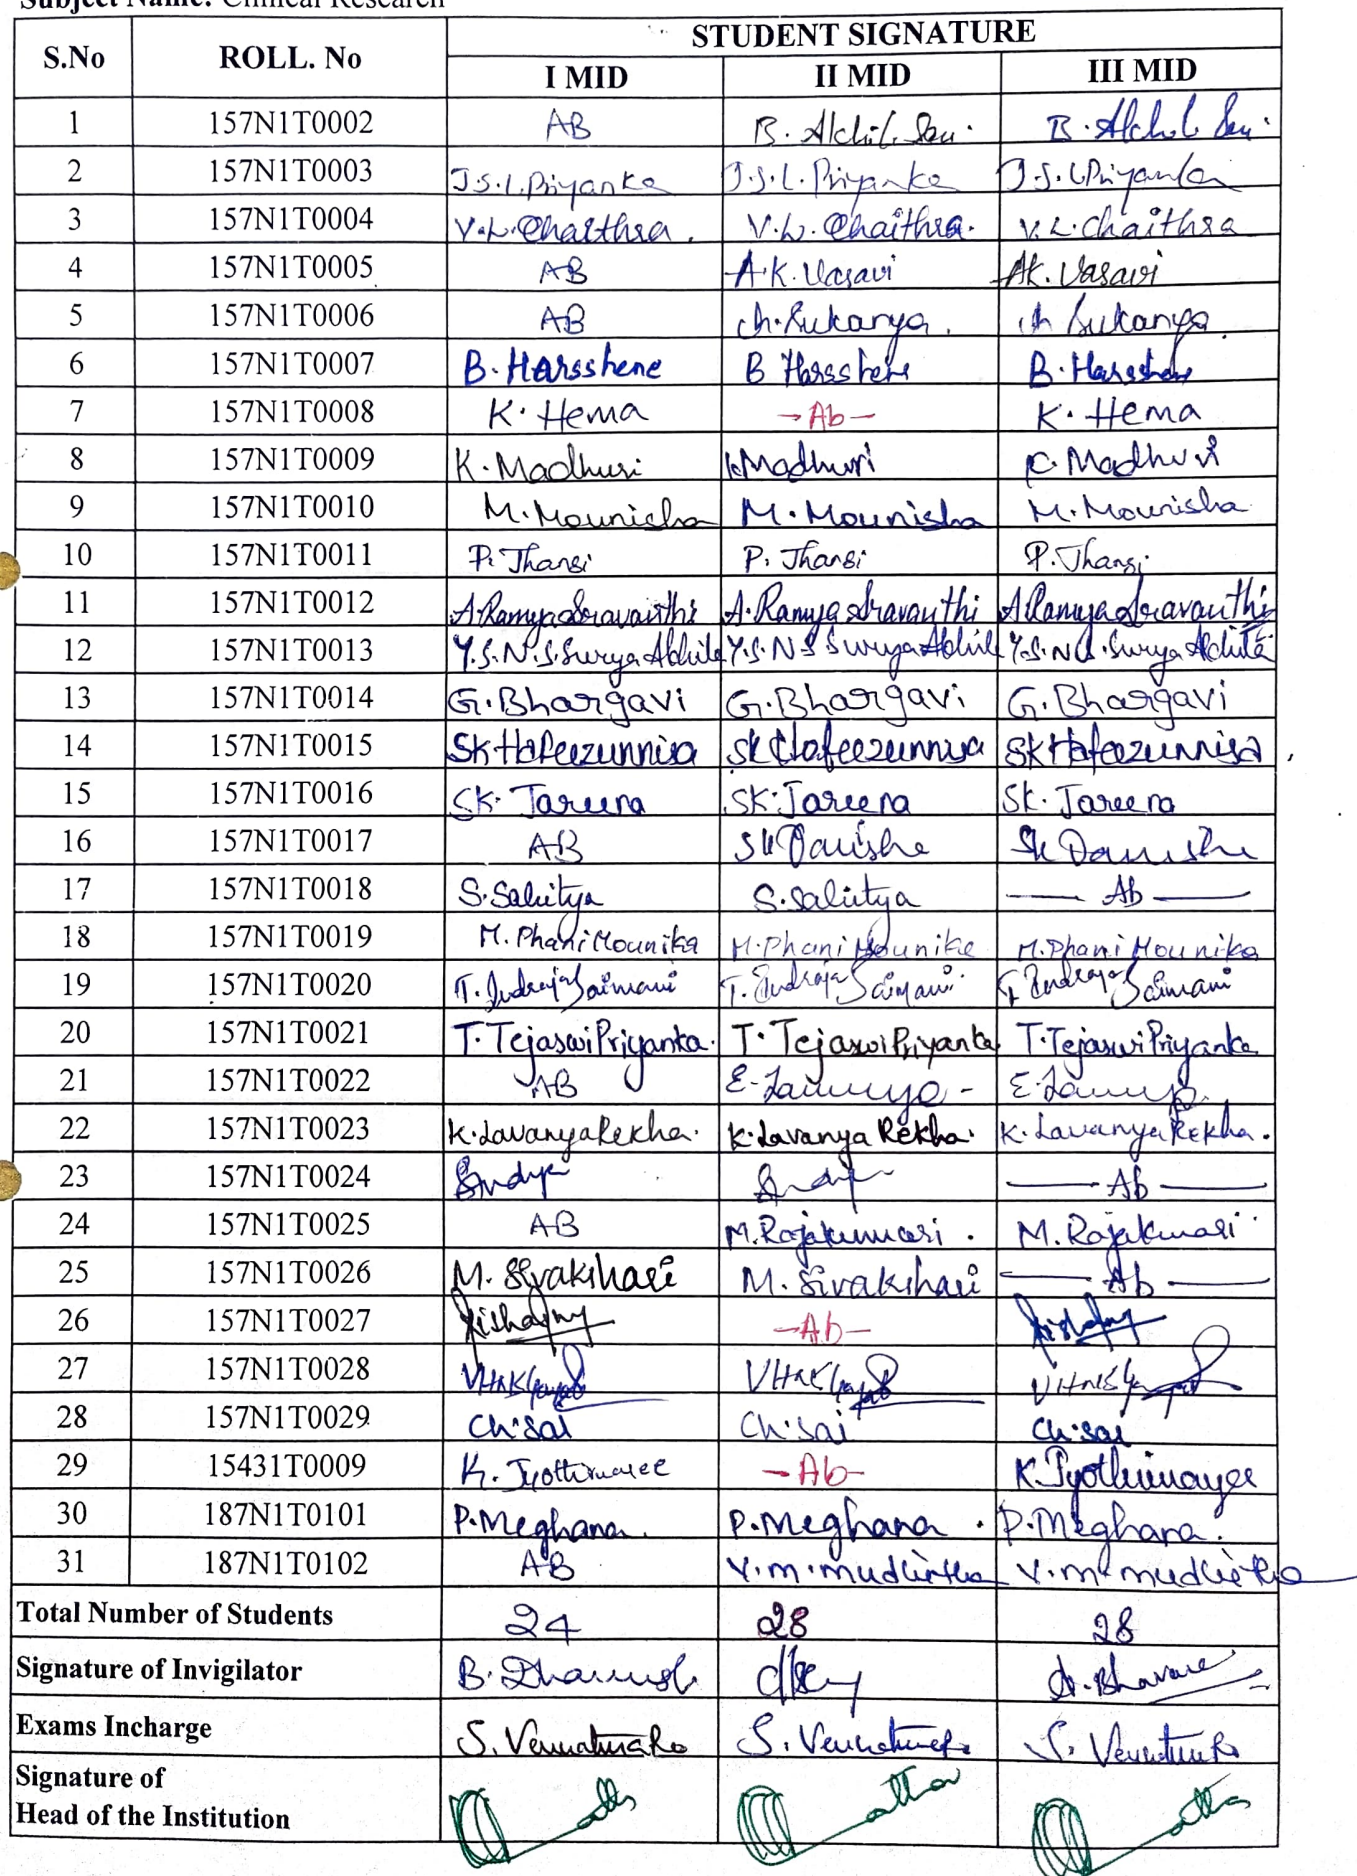 Subject Name: Clinical Research
S.No ROLL. No STUDENT SIGNATURE
I MID II MID III MID
1 157N1T0002 AB B. Akhil Sai. B. Akhil Sai.
2 157N1T0003 J.S.L.Priyanka J.S.L.Priyanka J.S.L.Priyanka
3 157N1T0004 V.L.Chaithra. V.L.Chaithra. V.L.Chaithra
4 157N1T0005 AB A.K.Vasavi A.K.Vasavi
5 157N1T0006 AB Ch.Sukanya. Ch Sukanya.
6 157N1T0007 B.Harsshene B Harsshene B.Harsshene
7 157N1T0008 K.Hema -Ab- K.Hema
8 157N1T0009 K.Madhuri K.Madhuri K.Madhuri
9 157N1T0010 M.Mounisha M.Mounisha M.Mounisha
10 157N1T0011 P. Jhansi P. Jhansi P. Jhansi
11 157N1T0012 A.Ramya Sravanthi A.Ramya Sravanthi A.Ramya Sravanthi
12 157N1T0013 Y.S.N.S.Surya Y.S.N.S Surya Y.S.N.S.Surya
13 157N1T0014 G.Bhargavi G.Bhargavi G.Bhargavi
14 157N1T0015 SK Hafeezunnisa SK Hafeezunnisa SK Hafeezunnisa
15 157N1T0016 SK. Jareena SK. Jareena SK. Jareena
16 157N1T0017 AB SK Danisha SK
17 157N1T0018 S.Sahitya S.Sahitya — Ab —
18 157N1T0019 M.Phani Mounika M.Phani Mounika M.Phani Mounika
19 157N1T0020 T.Indraja Saimani T.Indraja Saimani T.Indraja Saimani
20 157N1T0021 T.Tejaswi Priyanka. T.Tejaswi Priyanka T.Tejaswi Priyanka
21 157N1T0022 AB E. E.
22 157N1T0023 K.Lavanya Rekha. K.Lavanya Rekha. K.Lavanya Rekha.
23 157N1T0024 — Ab —
24 157N1T0025 AB M.Rajakumari. M.Rajakumari
25 157N1T0026 M. Sivakshari M. Sivakshari — Ab —
26 157N1T0027 -Ab-
27 157N1T0028
28 157N1T0029 Ch.Sai Ch.Sai Ch.Sai
29 15431T0009 K.Jyothirmayee -Ab- K.Jyothirmayee
30 187N1T0101 P.Meghana. P.Meghana. P.Meghana.
31 187N1T0102 AB Y.m.mudhitha Y.m.mudhitha
Total Number of Students 24 28 28
Signature of Invigilator B. A.Bhavani
Exams Incharge S. S. S.
Signature of
Head of the Institution